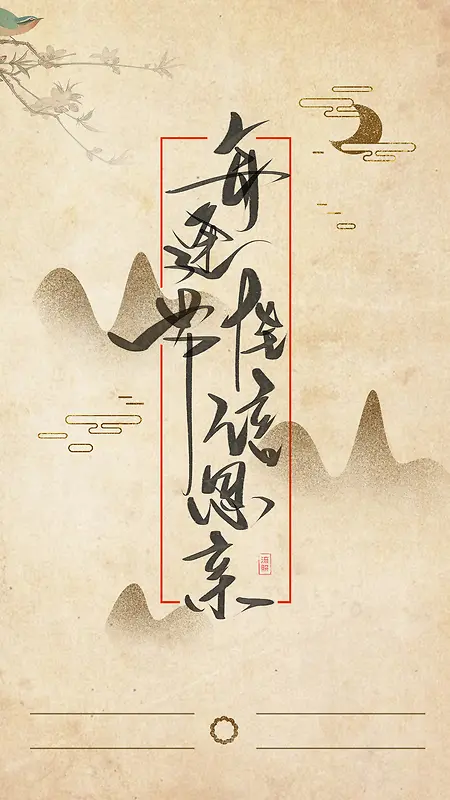 每逢佳节倍思亲